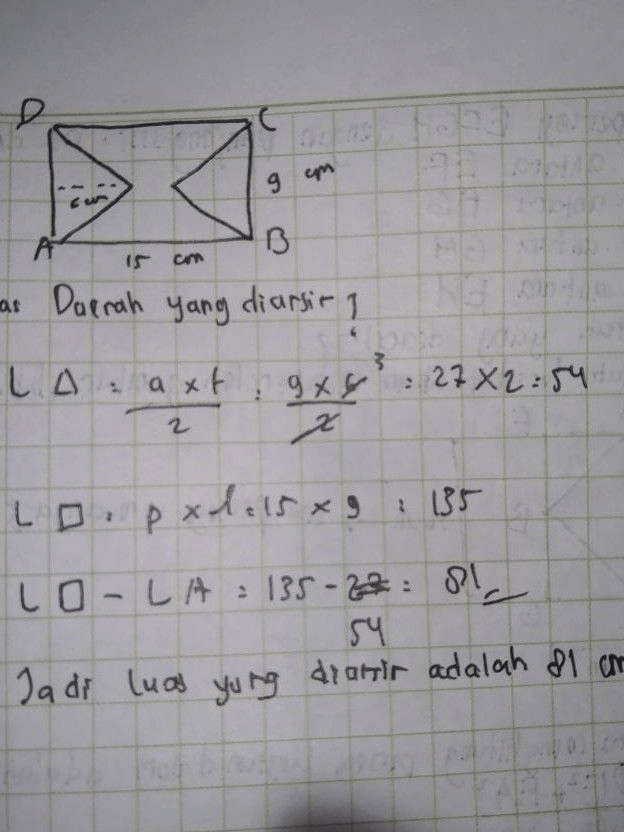 D C
6 cm 9 cm
A B
15 cm
as Daerah yang diarsir ?
L Δ = a x t / 2 = 9 x 6 3 / 2 = 27 x 2 = 54
L □ = p x l = 15 x 9 = 135
L □ - L Δ = 135 - 27 = 81
54
Jadi luas yang diarsir adalah 81 cm